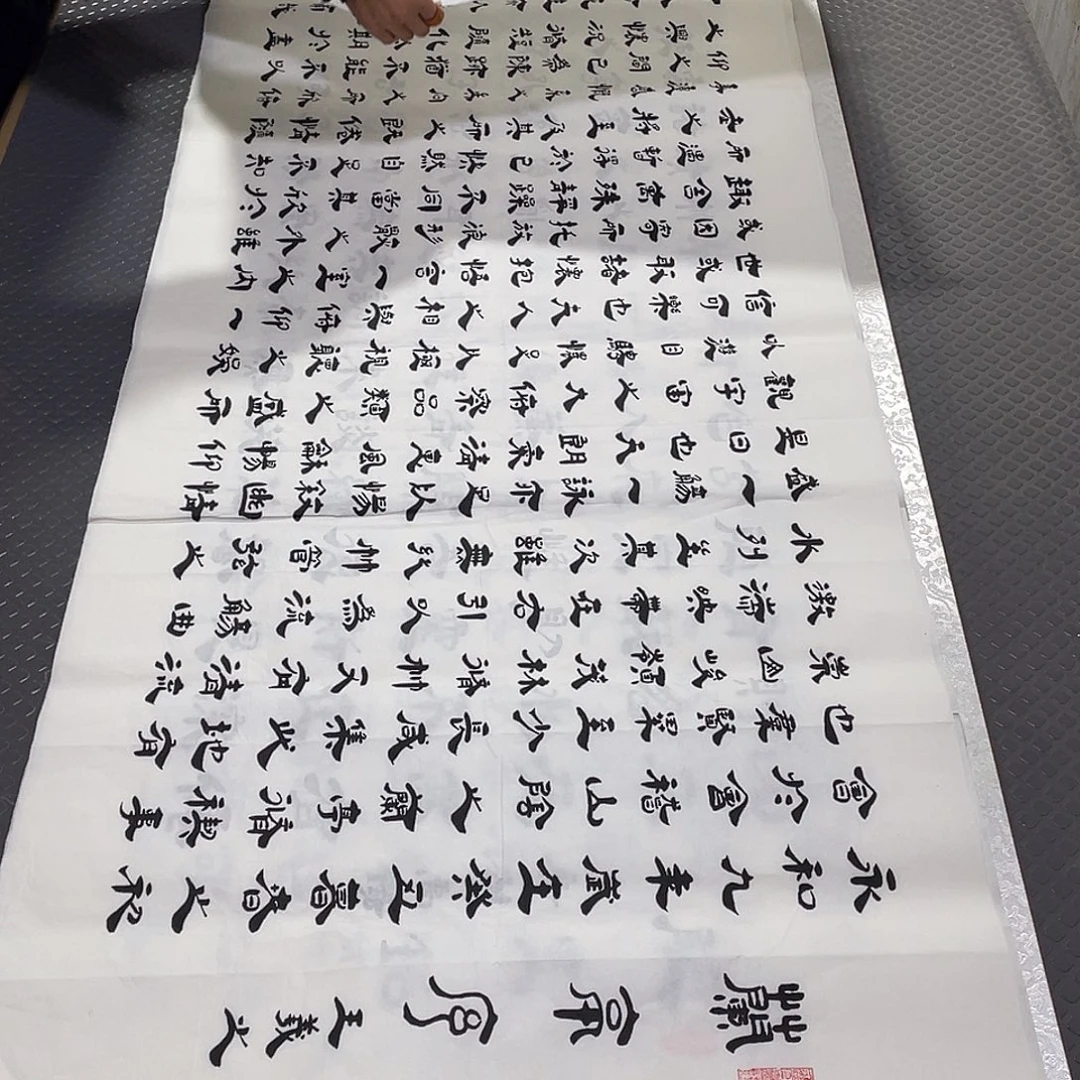 蘭亭序 王羲之
永和九年歲在癸丑暮春之初
會於會稽山陰之蘭亭脩禊事
也羣賢畢至少長咸集此地有
崇山峻嶺茂林脩竹又有清流
激湍映帶左右引以為流觴曲
水列坐其次雖無絲竹管弦之
盛一觴一詠亦足以暢敘幽情
是日也天朗氣清惠風和暢仰
觀宇宙之大俯察品類之盛所
以遊目騁懷足以極視聽之娛
信可樂也夫人之相與俯仰一
世或取諸懷抱悟言一室之內
或因寄所託放浪形骸之外雖
趣舍萬殊靜躁不同當其欣於
所遇暫得於己快然自足不知
老之將至及其所之既倦情隨
事遷感慨係之矣向之所欣俛
仰之閒已為陳跡猶不能不以
之興懷況脩短隨化終期於